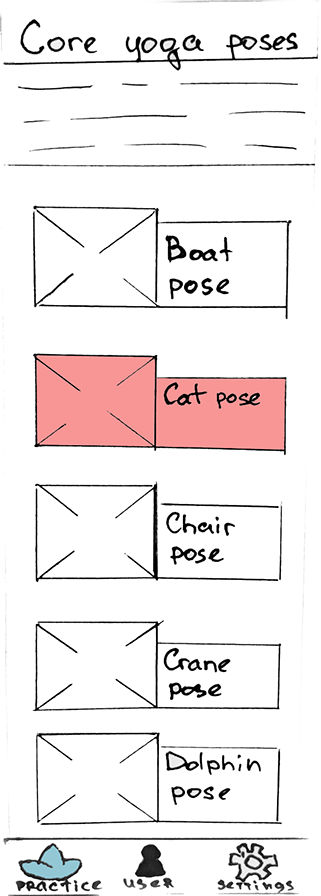 Core yoga poses
Boat
pose
Cat pose
Chair
pose
Crane
pose
Dolphin
pose
Practice
user
settings